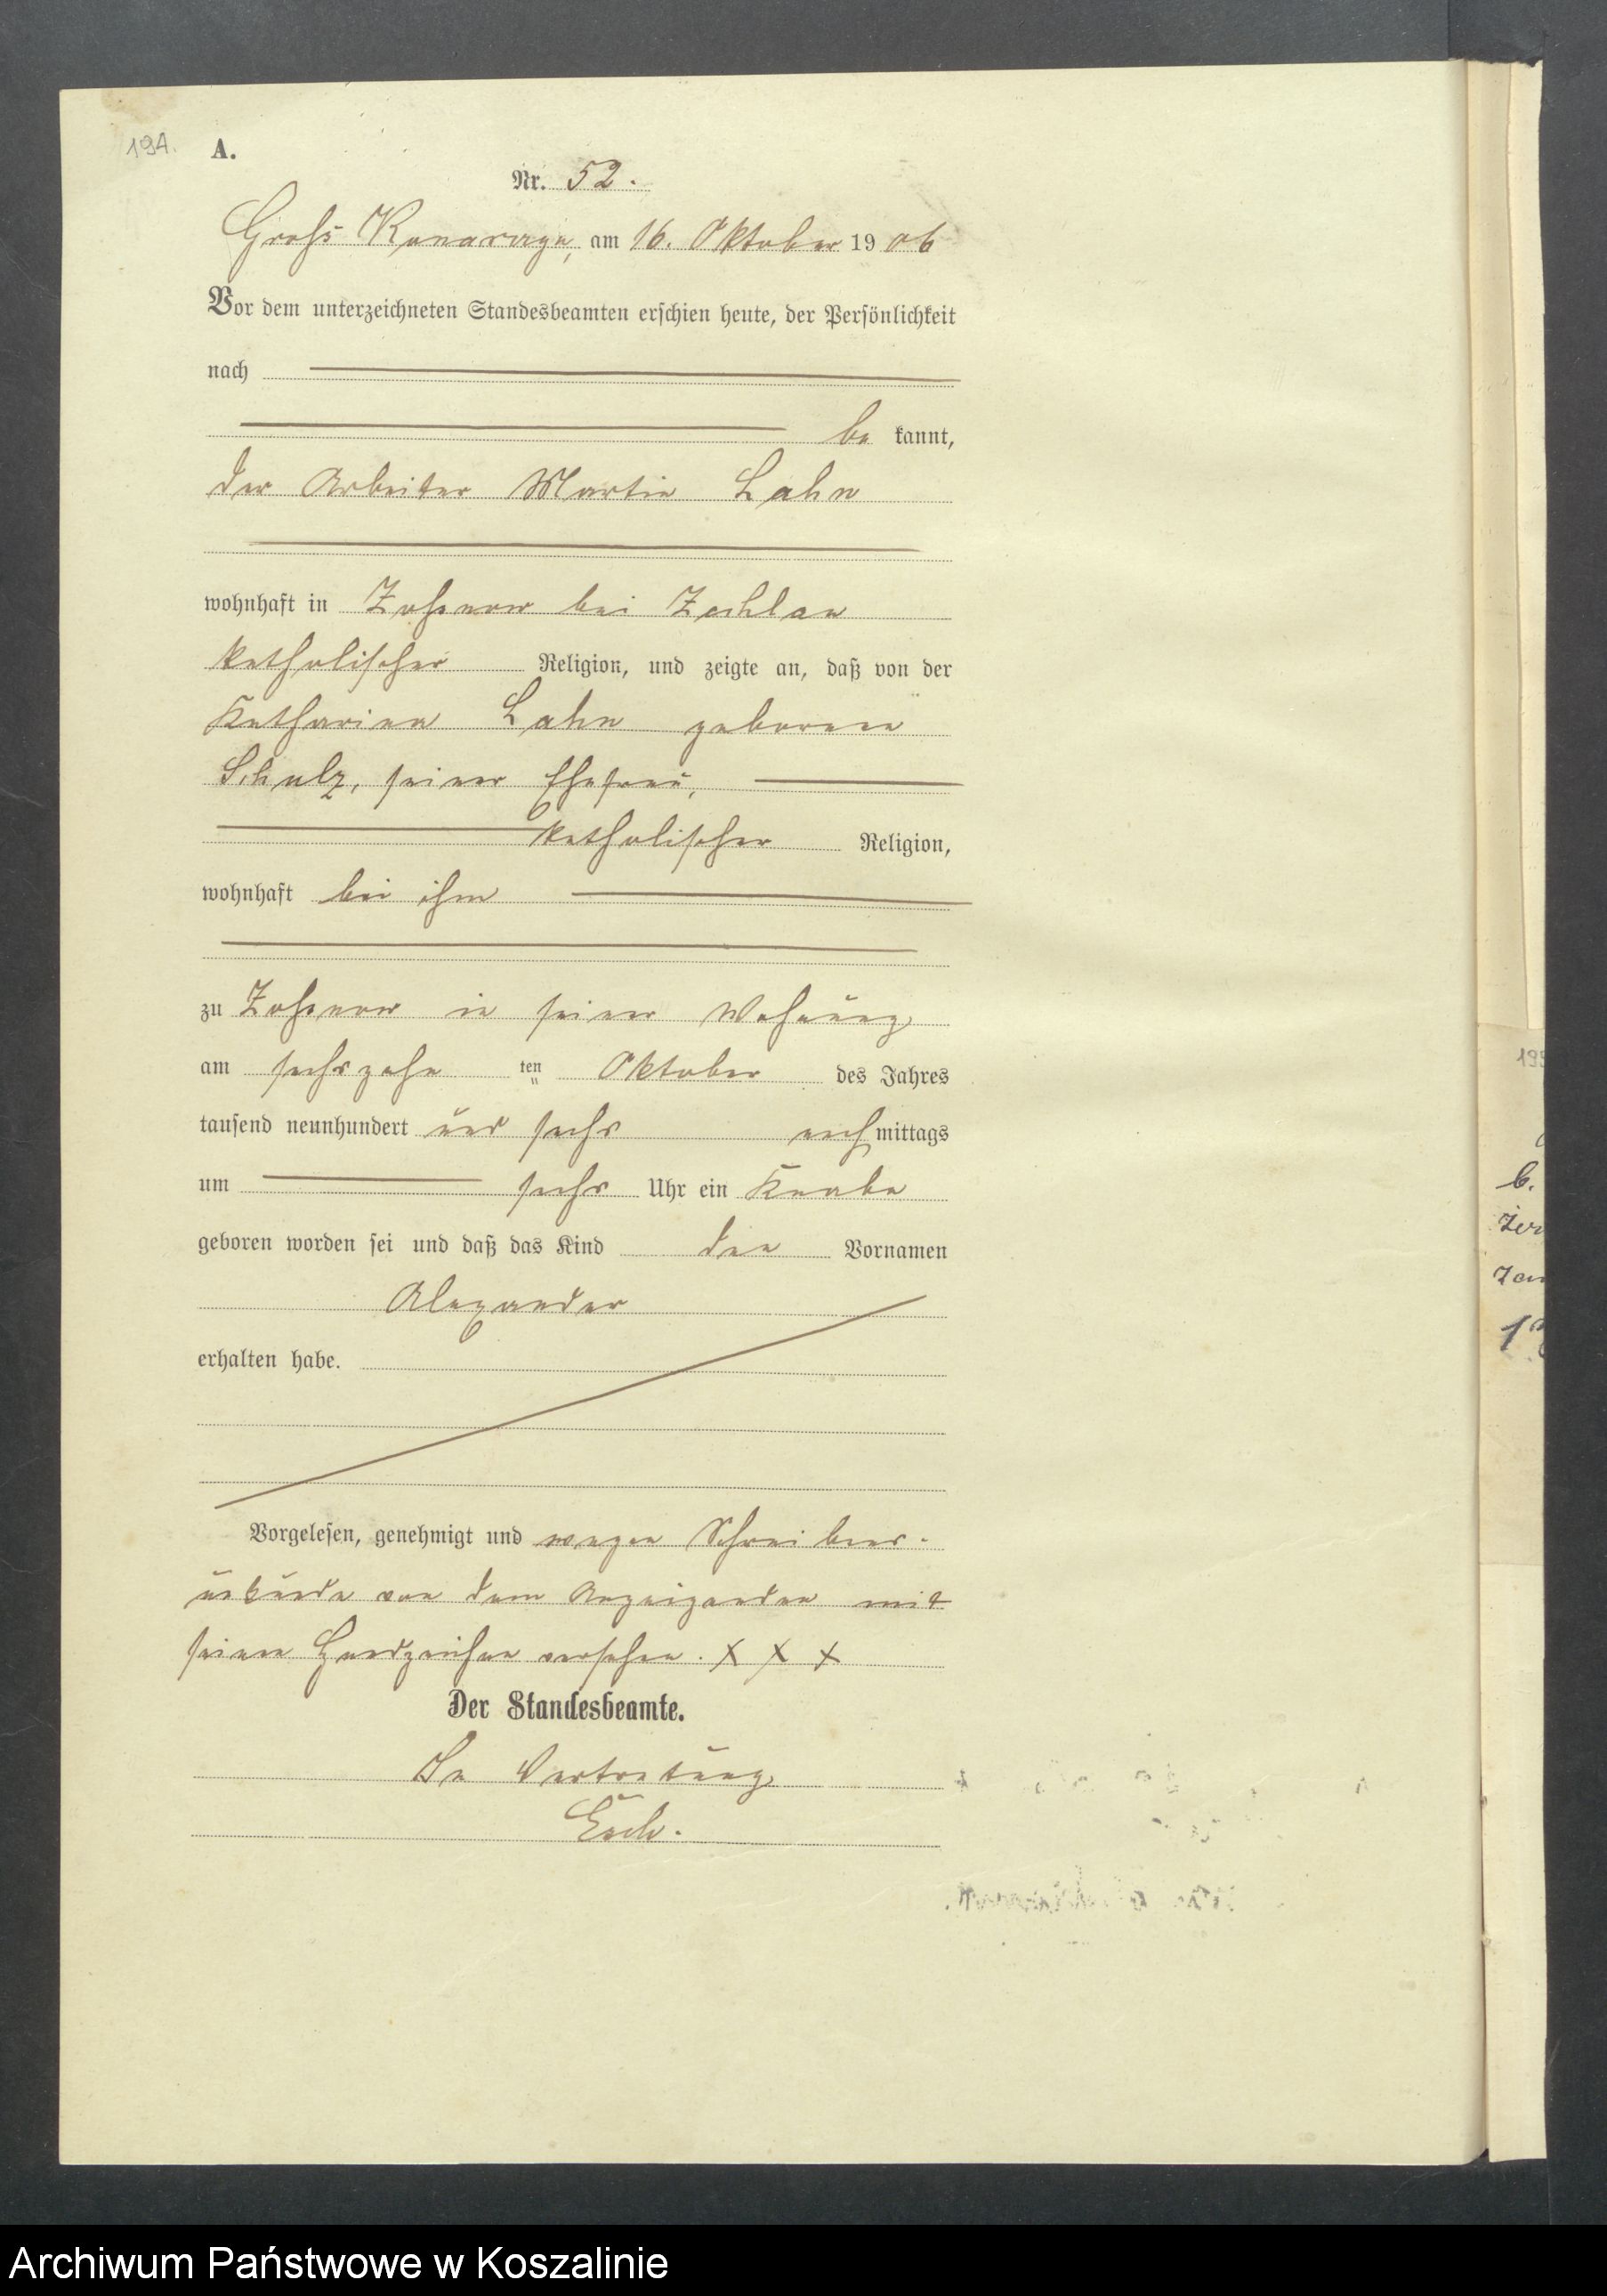 194. A.
Nr. 52.
Groß Konarczyn, am 16. Oktober 1906
Vor dem unterzeichneten Standesbeamten erschien heute, der Persönlichkeit
nach
be kannt,
der Arbeiter Martin Lahn
wohnhaft in Zoßnow bei Zechlau
katholischer Religion, und zeigte an, daß von der
Katharina Lahn geborene
Schulz, seiner Ehefrau,
katholischer Religion,
wohnhaft bei ihm
zu Zoßnow in seiner Wohnung
am sechszehn ten Oktober des Jahres
tausend neunhundert und sechs nachmittags
um sechs Uhr ein Knabe
geboren worden sei und daß das Kind den Vornamen
Alexander
erhalten habe.
Vorgelesen, genehmigt und wegen Schreibens-
unkunde von dem Anzeigenden mit
seinen Handzeichen versehen. X X X
Der Standesbeamte.
In Vertretung
b.
Archiwum Państwowe w Koszalinie